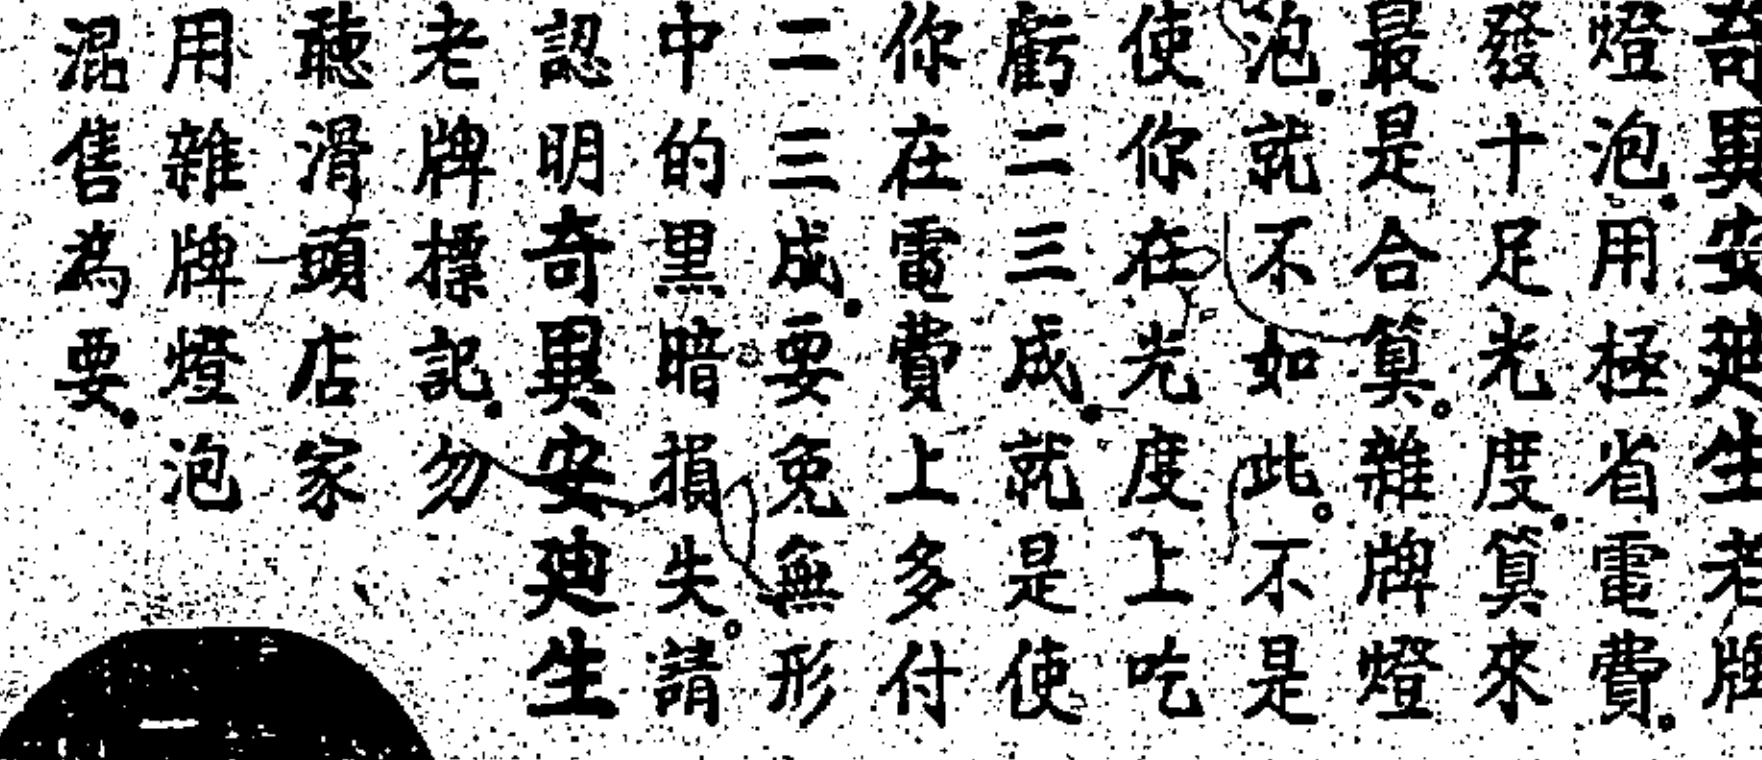 奇異安廸生老牌
燈泡．用極省電費．
發十足光度．算來
最是合算。雜牌燈
泡．就不如此。不是
使你在光度上吃
虧二三成．就是使
你在電費上多付
二三成．要免無形
中的黑暗損失。請
認明奇異安廸生
老牌標記．勿
聽滑頭店家
用雜牌燈泡
混售為要．